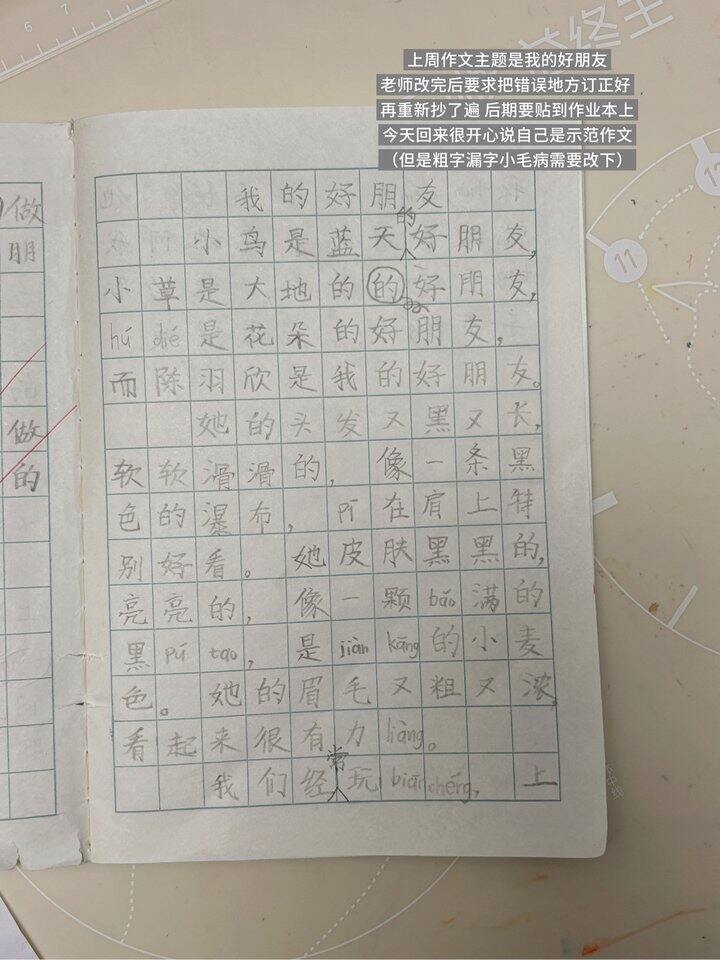 上周作文主题是我的好朋友
老师改完后要求把错误地方订正好
再重新抄了遍 后期要贴到作业本上
今天回来很开心说自己是示范作文
（但是粗字漏字小毛病需要改下）
我的好朋友
的
小鸟是蓝天好朋友，
小草是大地的的好朋友，
hú dié是花朵的好朋友，
而陈羽欣是我的好朋友。
她的头发又黑又长，
软软滑滑的，像一条黑
色的瀑布，pī在肩上特
别好看。她皮肤黑黑的，
亮亮的，像一颗bǎo满的
黑pú tao，是jiàn kāng的小麦
色。她的眉毛又粗又浓，
看起来很有力liàng。
常
我们经玩biān chéng，上
做
朋
做
的
11